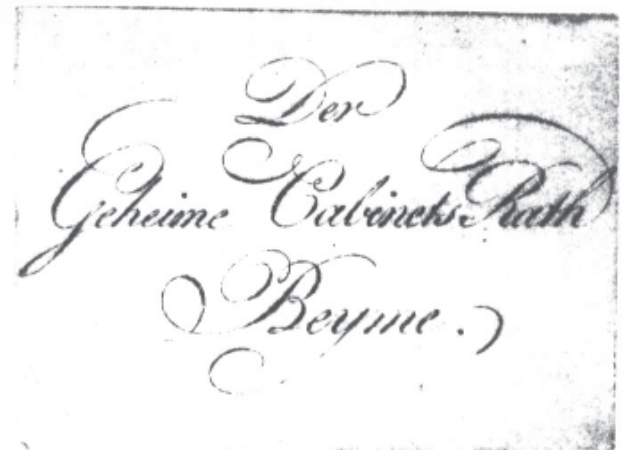 Der
Geheime Cabinets Rath
Beyme.